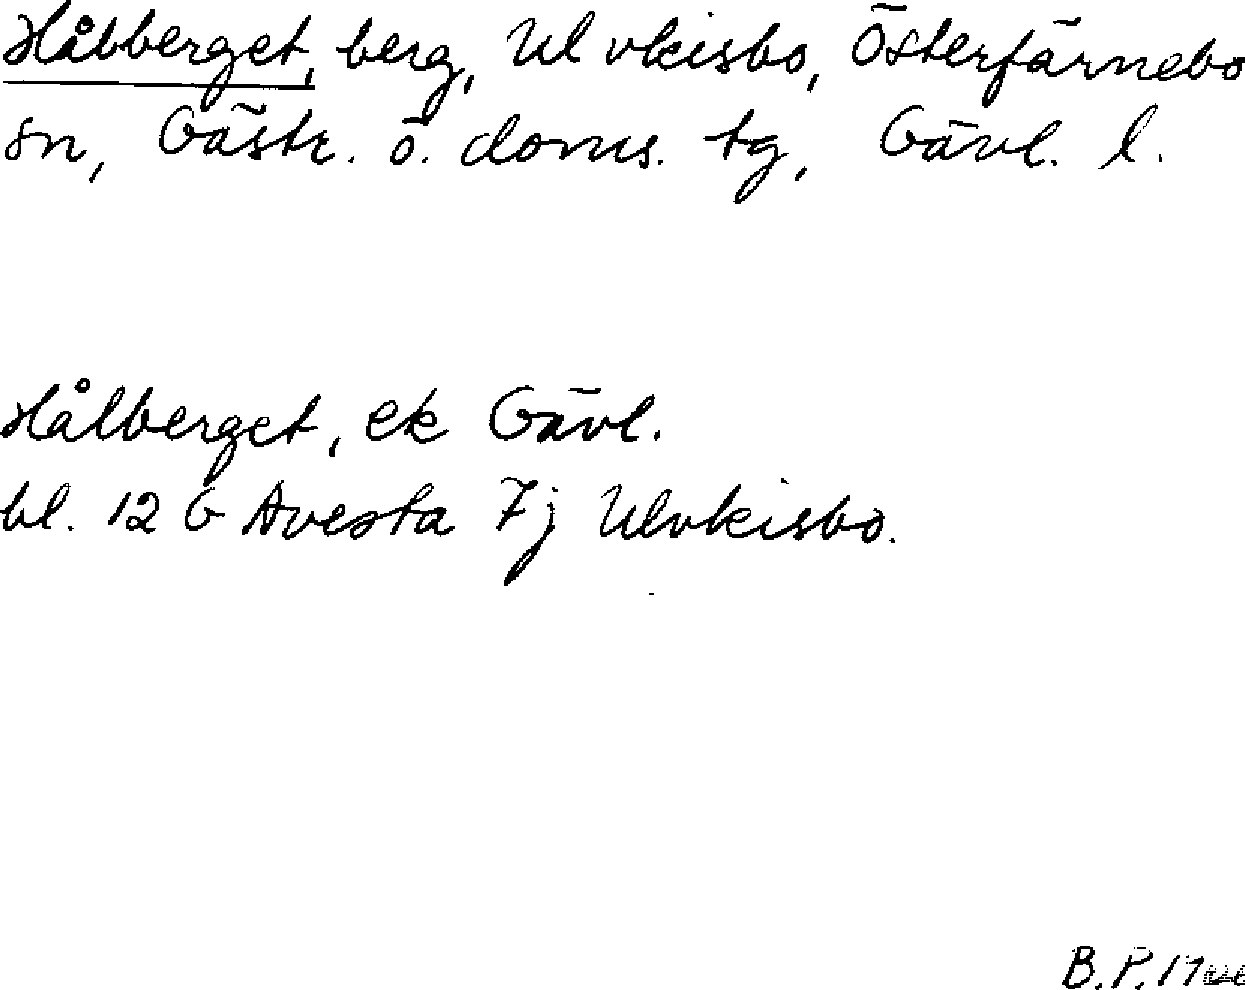 Hålberget, berg, Ulvkisbo, Österfärnebo
sn, Gästr. ö. doms. tg, Gävl. l.
Hålberget, ek Gävl.
bl. 12 G Avesta 7j Ulvkisbo.
B.P.